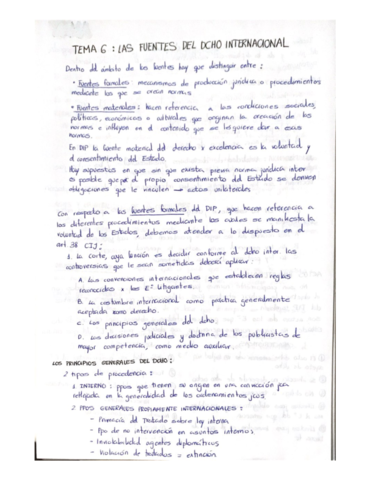 TEMA 6: LAS FUENTES DEL DCHO INTERNACIONAL
Dentro del ámbito de las fuentes hay que distinguir entre:
· Fuentes formales: mecanismos de producción jurídica o procedimientos
mediante los que se crean normas
· Fuentes materiales: hacen referencia a las condiciones sociales,
políticas, económicas o culturales que originan la creación de las
normas e influyen en el contenido que se les quiere dar a esas
normas.
En DIP la fuente material del derecho x excelencia es la voluntad y
el consentimiento del Estado.
Hay supuestos en que sin que exista previa norma jurídica inter
es posible que del propio consentimiento del Estado se deriven
obligaciones que le vinculen → actos unilaterales
Con respecto a las fuentes formales del DIP, que hacen referencia a
los diferentes procedimientos mediante los cuales se manifiesta la
voluntad de los Estados, debemos atender a lo dispuesto en el
art. 38 CIJ:
1. La corte, cuya función es decidir conforme al dcho inter las
controversias que le sean sometidas deberá aplicar:
A. Las convenciones internacionales que establecen reglas
reconocidas x los Eº litigantes.
B. La costumbre internacional como práctica generalmente
aceptada como derecho.
C. Los principios generales del dcho.
D. Las decisiones judiciales y doctrina de los publicistas de
mayor competencia, como medio auxiliar.
LOS PRINCIPIOS GENERALES DEL DCHO:
2 tipos de procedencia:
1. INTERNO: ppos que tienen su origen en una convicción jca
reflejada en la generalidad de los ordenamientos jcos
2. PPOS GENERALES PROPIAMENTE INTERNACIONALES:
- Primacía del Tratado sobre ley interna
- Ppo de no intervención en asuntos internos
- Inviolabilidad agentes diplomáticos
- de tratados x extinción